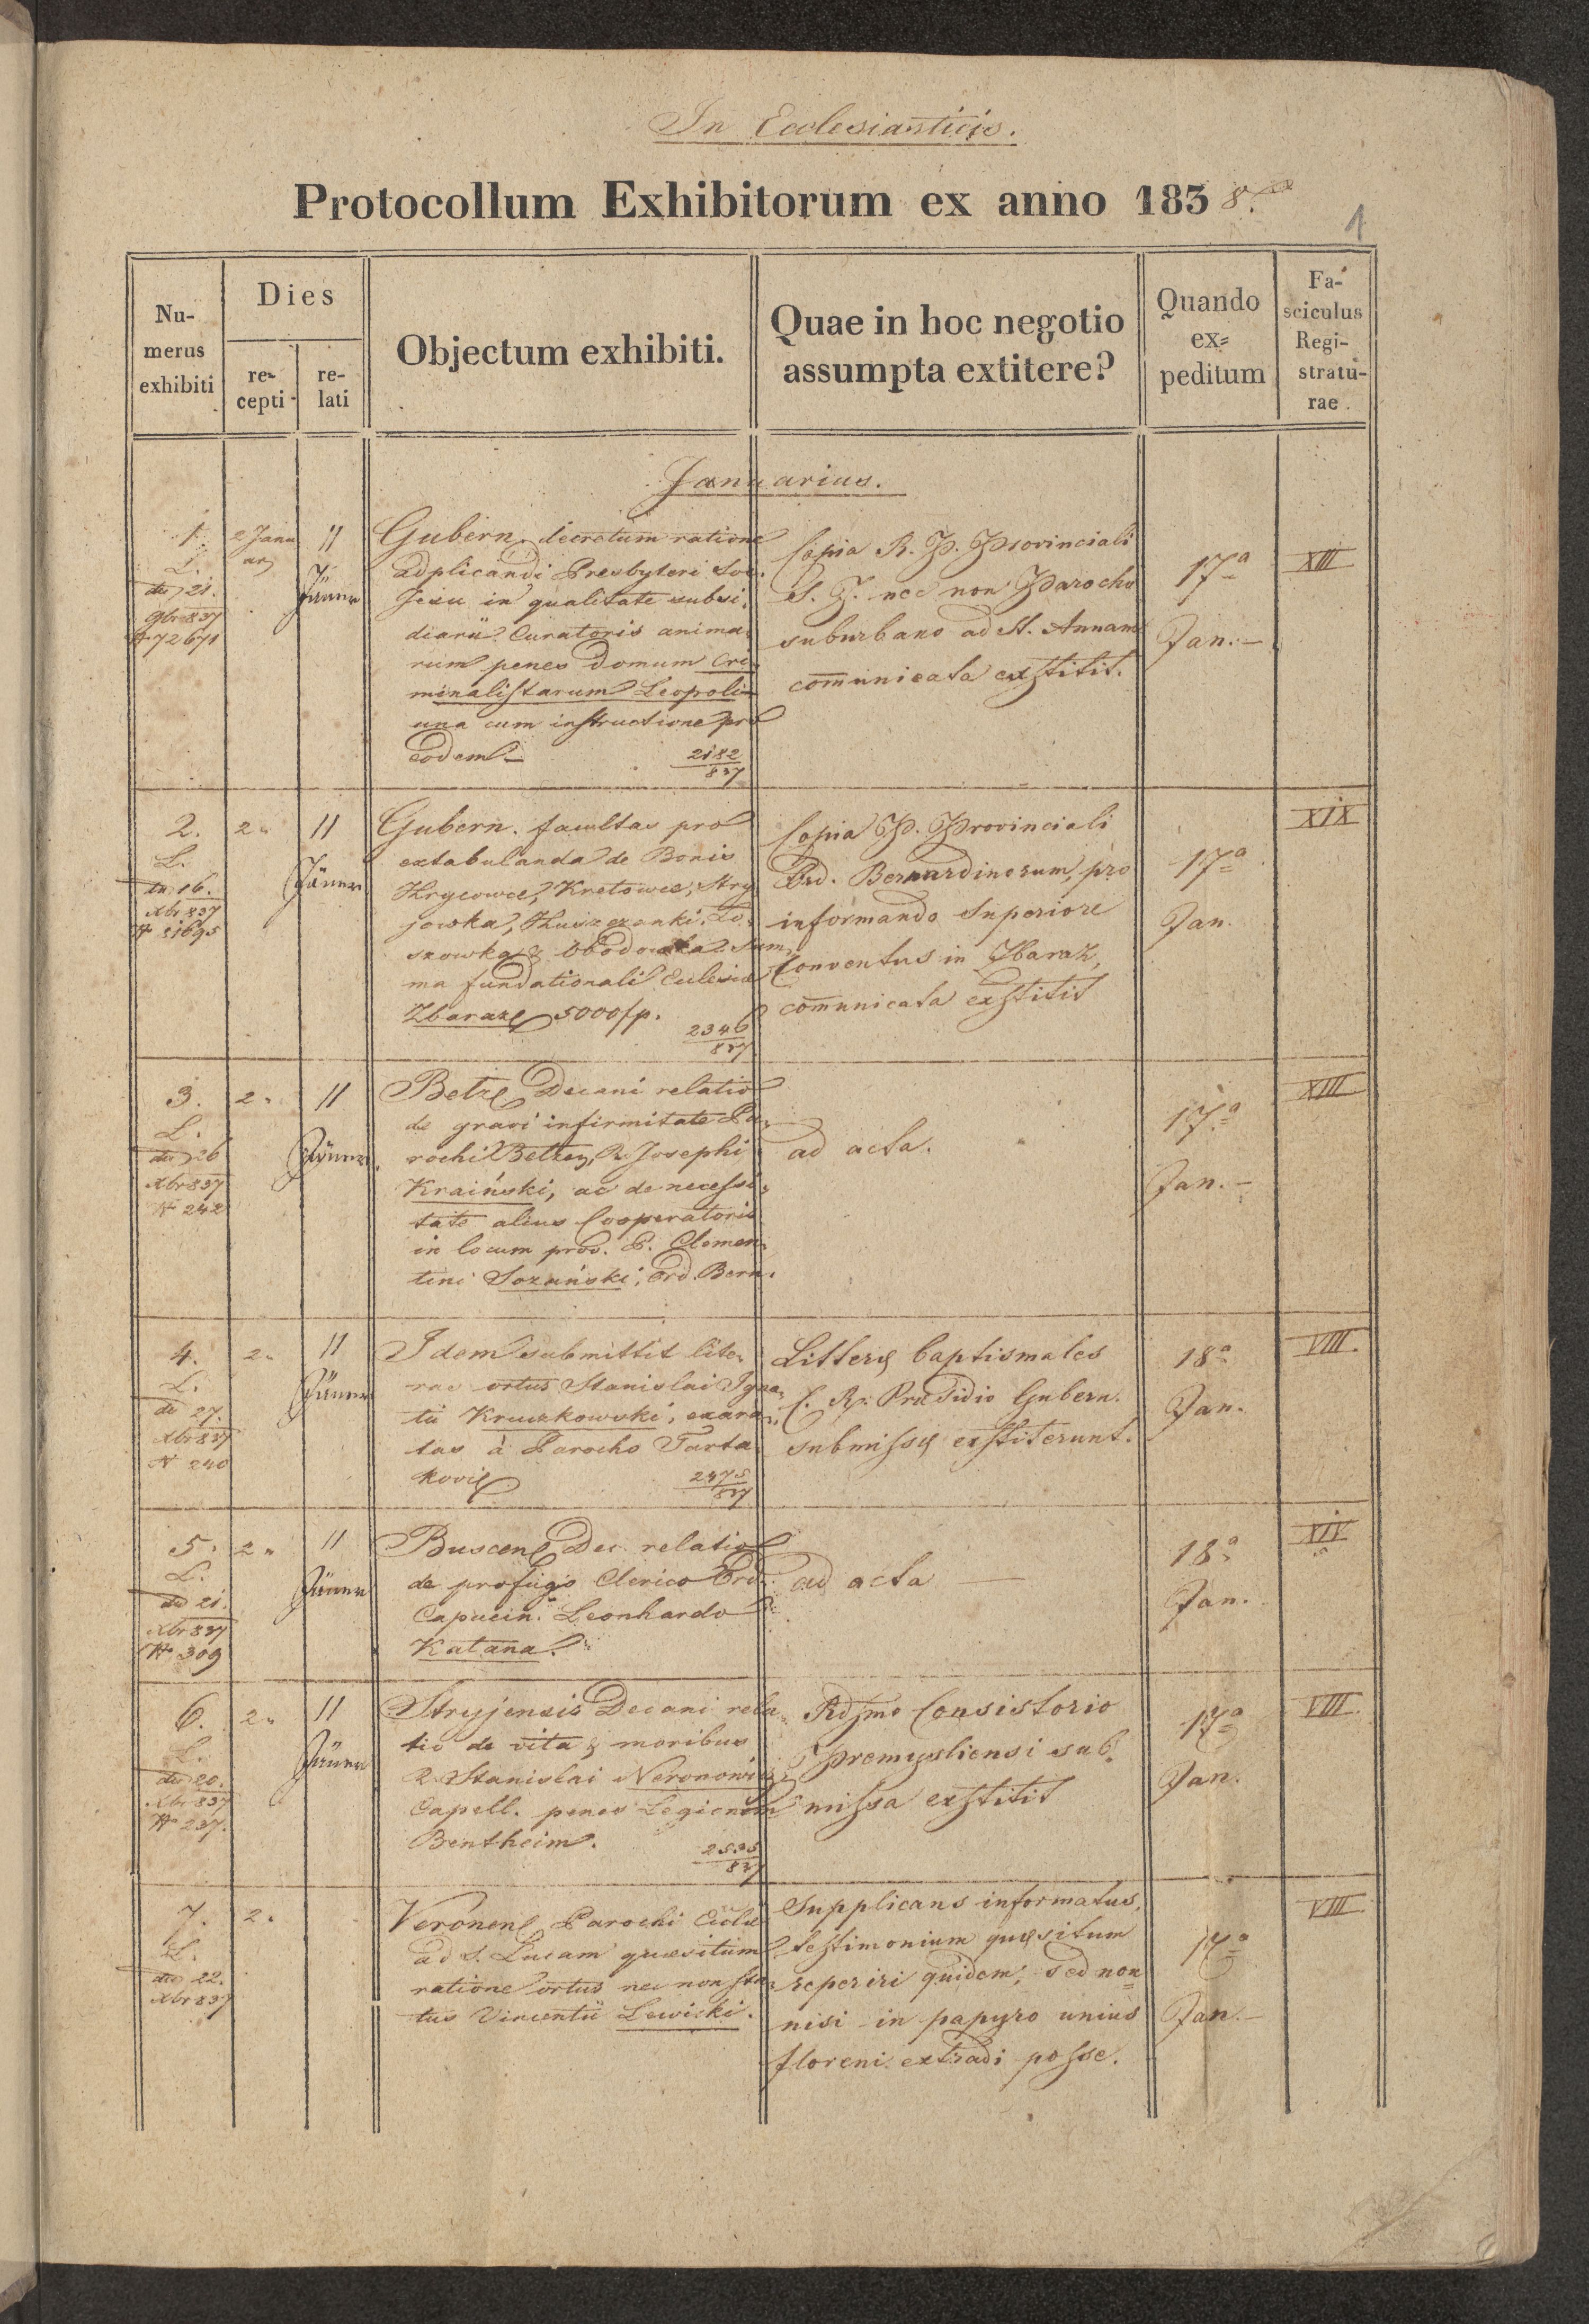 In Ecclesiasticis.
Protocollum Exhibitorum ex anno 1838.
1
Numerus exhibiti
Dies
recepti
relati
Objectum exhibiti.
Quae in hoc negotio
assumpta extitere?
Quando
ex=
peditum
Fa-
sciculus
Regi-
stratu-
rae.
Januarius.
1.
L.
dto 21.
9br 837
N 72671
2 Janu
ar
11
Jänner
Gubern. decretum ratione
adplicandi Presbyteri Soc.
Jesu in qualitate subsi-
diarii Curatoris anima-
rum penes domum Cri-
minalistarum Leopoli
una cum instructione pro
eodem.—
2182
837
Copia R. P. Provinciali
S. J. nec non Parocho
suburbano ad St. Annam
com̄unicata exstitit.
17a
Jan.—
XIII
2.
L.
dto 16.
Xbr 837
2"
11
Jänner
Gubern. facultas pro
extabulanda de Bonis
Hrycowce, Kretowce, Stry
jowka, Kuszczanki, Lo-
szowka & Obodowka sum-
ma fundationali Ecclesiæ
Zbaraz 5000 fp.
2346
837
Copia P. Provinciali
Ord. Bernardinorum, pro
informando Superiore
Conventus in Zbaraz,
com̄unicata exstitit
17a
Jan.
XIX
3.
L.
dto 26
Xbr 837
N 242
2"
11
Jänner.
Betze Decani relatio
de gravi infirmitate Pa-
rochi Betzen, R. Josephi
Kraiński, ac de necessi-
tate alius Cooperatoris
in locum prov. P. Clemen-
tini Sozański, Ord. Bern.
ad acta.
17.a
Jan.—
XIII
4.
L.
de 27.
Xbr 837
N 240
2"
11
Jänner
Idem submittit lite-
ras ortus Stanislai Igna-
tii Kruszkowski, exara-
tas à Parocho Tarta
koviæ
2475
837
Litteræ baptismales
C. R. Præsidio Gubern.
submissæ exstiterunt.
18a
Jan.
VIII.
5.
L.
dto 21.
Xbr 837
N 309
2"
11
Jänner
Buscens Dec. relatio
de profugo Clerico Ord.
Capucin. Leonhardo
Katana.
ad acta —
18a
Jan.
XIV
6.
L.
dto 20.
Xbr 837
N 237.
2"
11
Jänner
Stryjensis Decani rela
tio de vita & moribus
R. Stanislai Neronowicz
Capell. penes Legionem
Bentheim.
2535
837
Rdsmo Consistorio
Premysliensi sub-
missa exstitit
17a
Jan.
VIII.
7.
L.
dto 22.
Xbr 837
2"
Veronens Parochi
ad S. Lucam quæsitum
ratione ortus nec non sta-
tus Vincentii Lewicki.
Supplicans informatus,
testimonium quæsitum
reperiri quidem, sed non
nisi in papyro unius
floreni extradi posse.
17a
Jan.—
VIII